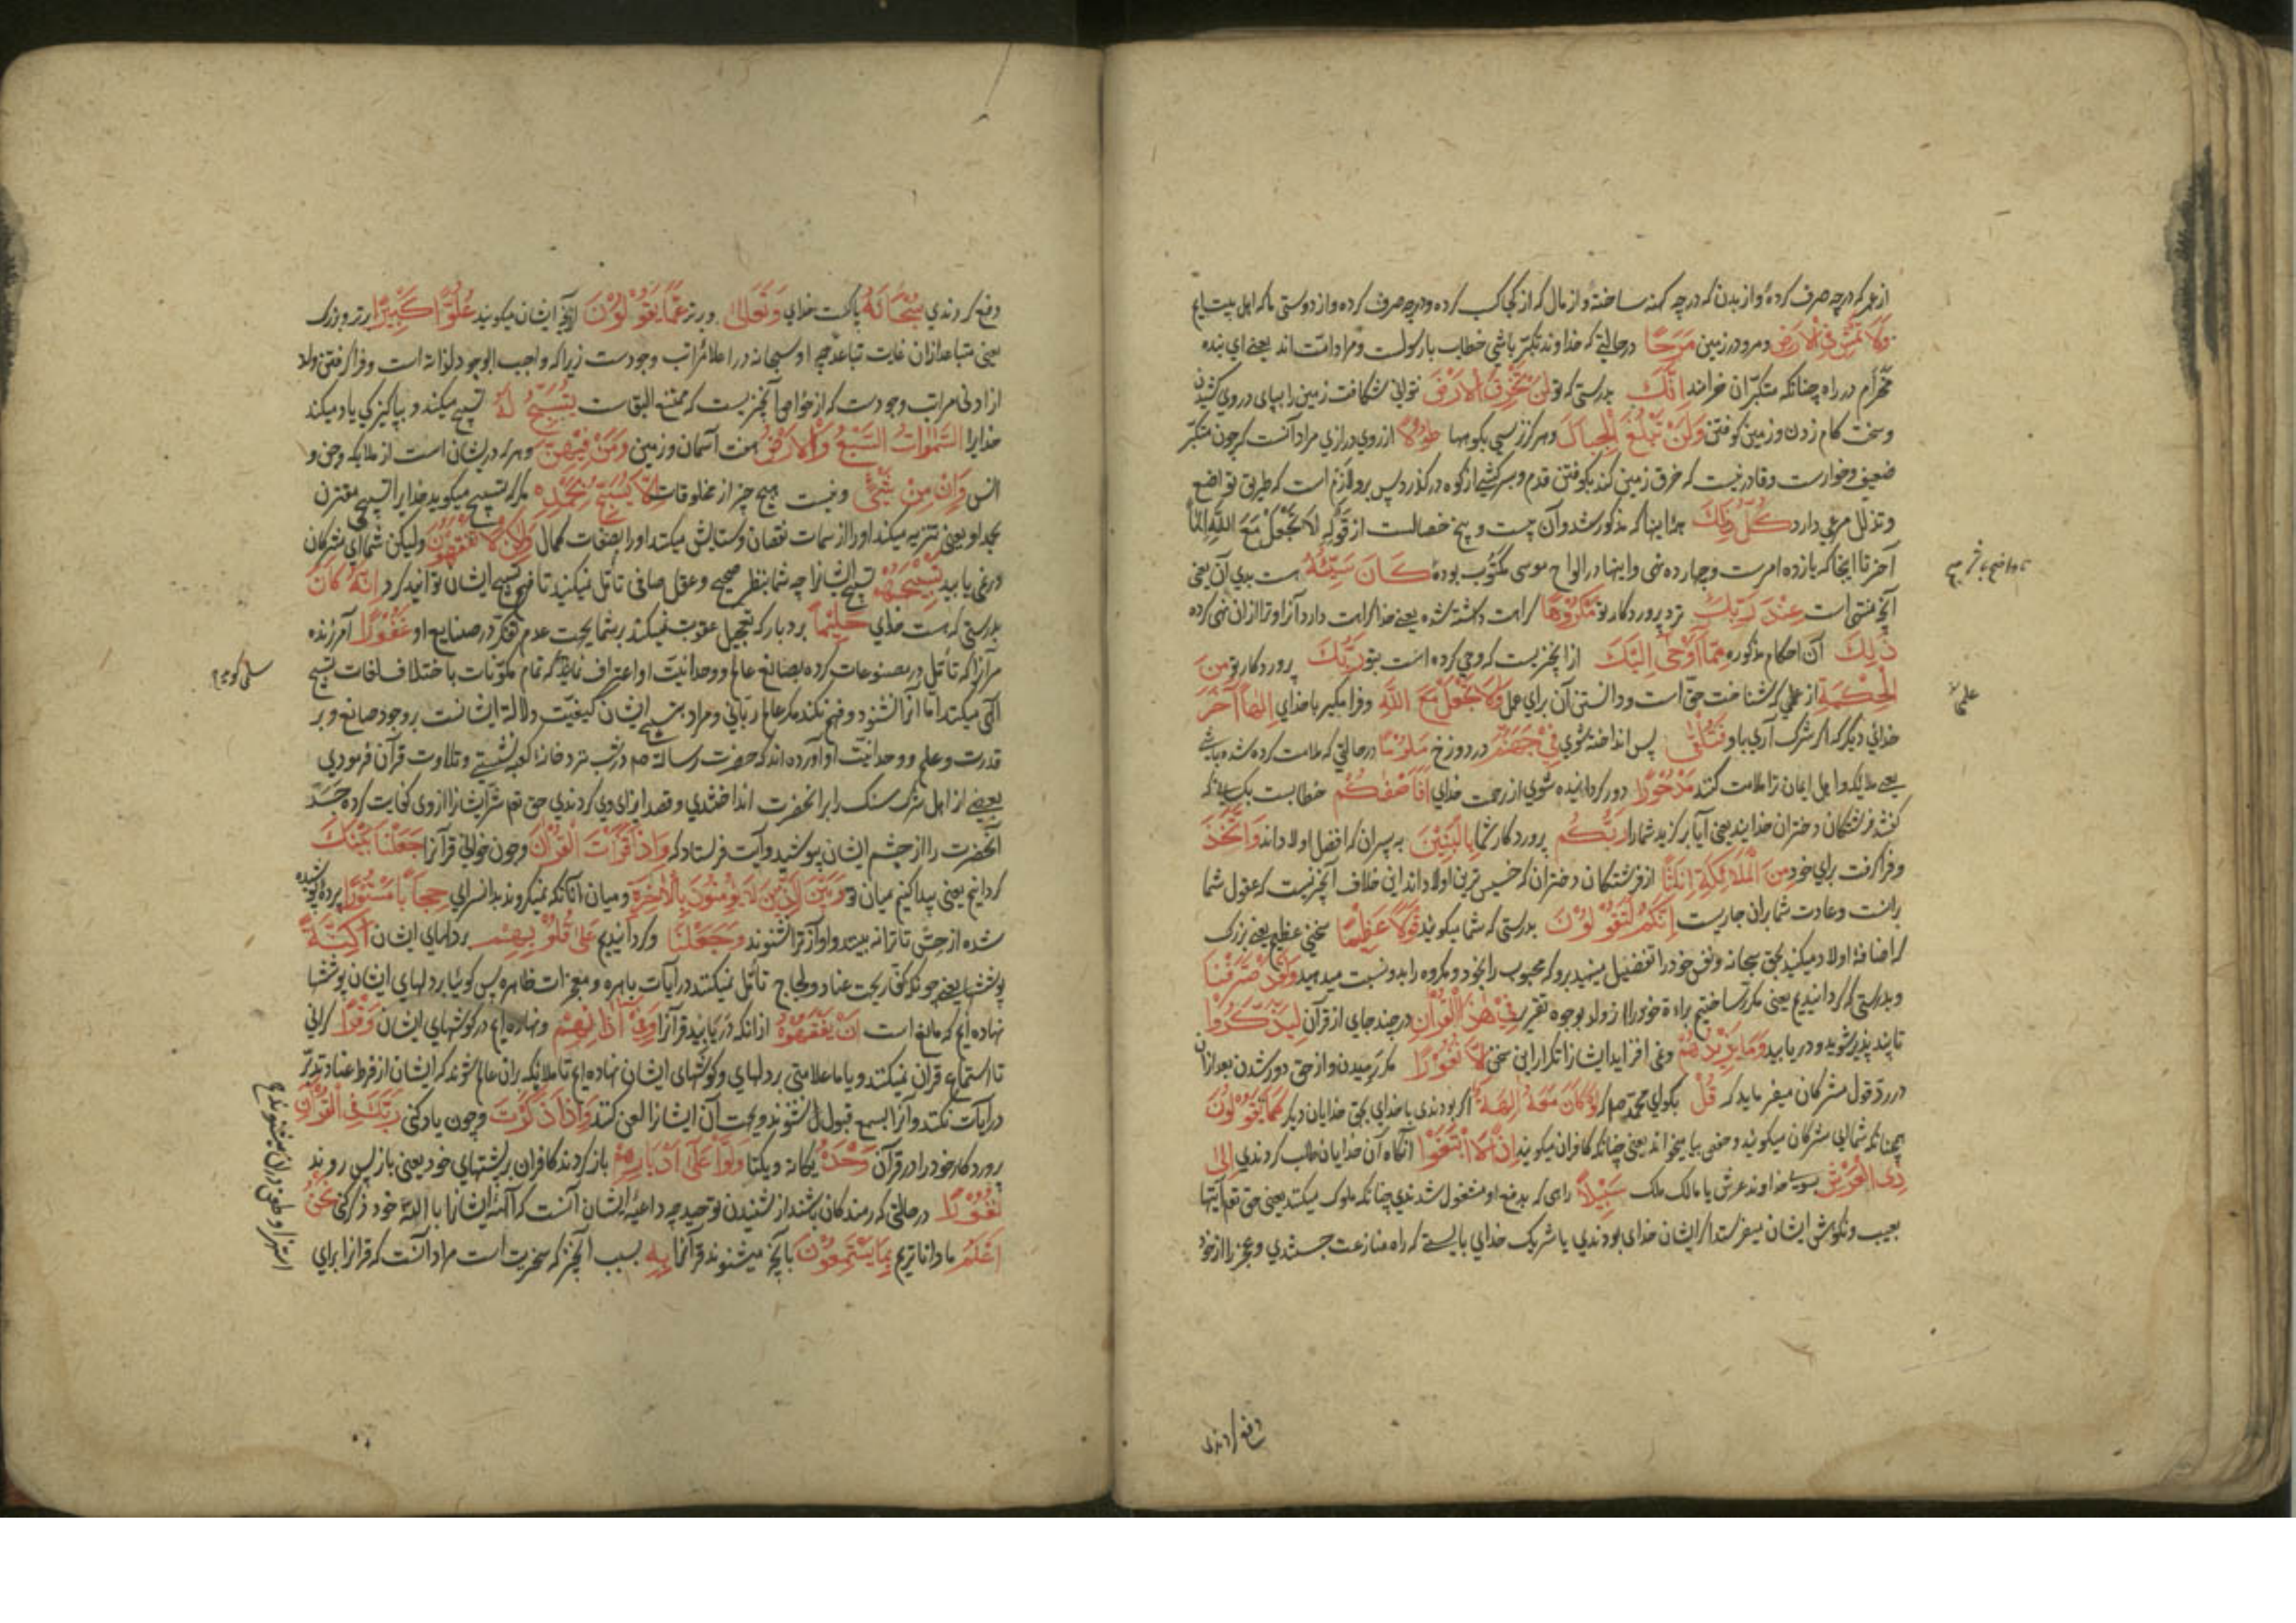 از عمر که درچه صرف کردهٔ و از بدن که درچه کهنه ساختهٔ و از مال که از کجا کسب کرده و درچه صرف کرده و از دوستی ما که اهل بیت ایم
وَلَا تَمْشِ فِی الْاَرْضِ و مرو در زمین مَرَحًا درحالتی که خداوند تکبّر باشی خطاب با رسولست و مراد امّت اند یعنے ای بنده
مخرام در راه چنانکه متکبّران خرامند اِنَّکَ بدرستی که تو لَنْ تَخْرِقَ الْاَرْضَ نتوانی شکافت زمین را بپای در وی کشیدن
و سخت گام زدن و زمین کوفتن وَلَنْ تَبْلُغَ الْجِبَالَ و هرگز نرسی بکوهها طُوْلًا از روی درازی مراد آنست که چون متکبّر
ضعیف و خوارست و قادر نیست که خرق زمین کند بکوفتن قدم و بسرکشی از کوه درگذرد پس برو لازم است که طریق تواضع
و تذلل مرعی دارد کُلُّ ذٰلِکَ همهٔ اینها که مذکور شد و آن بیست و پنج خصالست از قَوْلِهِ لَا تَجْعَلْ مَعَ اللّٰهِ اِلٰهًا
آخر تا اینجا که یازده امرست و چهارده نهی و اینها در الواح موسی مکتُوب بوده کَانَ سَیِّئُهُ هست بدی آن یعنی
آنچه منهی است عِنْدَ رَبِّکَ نزد پروردگار تو مَکْرُوْهًا کراهت داشته شده یعنے خدا کراهت دارد آنرا و ترا ازان نهی کرده
ذٰلِکَ آن احکام مذکوره مِمَّا اَوْحٰی اِلَیْکَ از آنچیزیست که وحی کرده است بتو رَبُّکَ پروردگار تو مِنَ
الْحِکْمَةِ از علمی که شناخت حقّ است و دانستن آن برای عمل وَلَا تَجْعَلْ مَعَ اللّٰهِ و فرا مگیر با خدای اِلٰهًا اٰخَرَ
خدائی دیگر که اگر شرک آری باو فَتُلْقٰی پس انداخته شوی فِیْ جَهَنَّمَ در دوزخ مَلُوْمًا درحالتی که ملامت کرده شده باشی
یعنے ملایکه و اهل ایمان ترا ملامت کنند مَدْحُوْرًا دور گردانیده شوی از رحمت خدای اَفَاَصْفٰکُمْ خطابست بکسانی که
گفتند فرشتگان دختران خدایند یعنی آیا برگزید شما را رَبُّکُمْ پروردگار شما بِالْبَنِیْنَ به پسران که افضل اولاد اند وَاتَّخَذَ
و فرا گرفت برای خود مِنَ الْمَلٰٓئِکَةِ اِنَاثًا از فرشتگان دختران که خسیس ترین اولاد اند این خلاف آنچیزیست که عقول شما
برانست و عادت شما بران جاریست اِنَّکُمْ لَتَقُوْلُوْنَ بدرستی که شما میگوئید قَوْلًا عَظِیْمًا سخنی عظیم یعنے بزرگ
که اضافهٔ اولاد میکنید بحق سبحانه و نفس خود را تفضیل مینهید برو که محبوب را بخود و مکروه را بدو نسبت میدهید وَلَقَدْ صَرَّفْنَا
و بدرستی که گردانیدیم یعنی مکرّر ساختیم براءة خود را از ولد بوجوه تقریر فِیْ هٰذَا الْقُرْاٰنِ در چند جای از قرآن لِیَذَّکَّرُوْا
تا پند پذیر شوند و دریابند وَمَا یَزِیْدُهُمْ و نمی افزاید ایشانرا تکرار این سخن اِلَّا نُفُوْرًا مگر رمیدن و از حق دور شدن بعد ازان
در ردّ قول مشرکان میفرماید که قُلْ بگو ای محمّد صلعم که لَوْ کَانَ مَعَهُ اٰلِهَةٌ اگر بودندی با خدای بحق خدایان دیگر کَمَا یَقُوْلُوْنَ
همچنانکه شما ای مشرکان میگوئید و حفص بیا میخواند یعنی چنانکه کافران میگویند اِذًا لَّابْتَغَوْا آنگاه آن خدایان طلب کردندی اِلٰی
ذِی الْعَرْشِ بسوی خداوند عرش یا مالک ملک سَبِیْلًا راهی که بدفع او مشغول شدندی چنانکه ملوک میکنند یعنی حق تعم آیتها
بعیب و نکوهش ایشان میفرستد اگر ایشان خدای بودندی یا شریک خدای بایستے که راه منازعت جستندی و عجز را از خود
علمی
دفع کردندی
دفع کردندی سُبْحَانَهُ پاکست خدای وَتَعَالٰی و برتر عَمَّا یَقُوْلُوْنَ از آنچه ایشان میگویند عُلُوًّا کَبِیْرًا برتر و بزرگ
یعنی متباعد ازان غایت تباعد چه او سبحانه در اعلا مراتب وجودست زیرا که واجب الوجود لذاته است و فرا گرفتن ولد
از ادنی مراتب وجودست که از خواص آنچیزیست که ممتنع البقاست تُسَبِّحُ لَهُ تسبیح میکند و بپاکیزگی یاد میکند
خدایرا السَّمٰوَاتُ السَّبْعُ وَالْاَرْضُ هفت آسمان و زمین وَمَنْ فِیْهِنَّ و هرکه دریشان است از ملایکه و جن و
انس وَاِنْ مِنْ شَیْءٍ و نیست هیچ چیز از مخلوقات اِلَّا یُسَبِّحُ بِحَمْدِهِ مگر که تسبیح میگوید خدایرا تسبیحی مقترن
بحمد او یعنی تنزیه میکند او را از سمات نقصان و ستایش میکند او را بصفات کمال وَلٰکِنْ لَا تَفْقَهُوْنَ ولیکن شما ای مشرکان
درنمی یابید تَسْبِیْحَهُمْ تسبیح ایشانرا چه شما بنظر صحیح و عقل صافی تأمّل نمیکنید تا فهم تسبیح ایشان توانید کرد اِنَّهُ کَانَ
بدرستی که هست خدای حَلِیْمًا بردبار که بتعجیل عقوبت نمیکند بر شما بجهت عدم تفکّر در صنایع او غَفُوْرًا آمرزنده
مرآنرا که تأمّل در مصنوعات کرده بصانع عالم و وحدانیّت او اعتراف نماید که تمام مکوّنات باختلاف لغات تسبیح
الٰهی میکنند امّا آنرا نشنود و فهم نکند مگر عالم ربّانی و مراد بتسبیح ایشان کیفیّت دلالة ایشانست بر وجود صانع و بر
قدرت و علم و وحدانیّت او آورده اند که حضرت رسالة صم در شب نزد خانهٔ کعبه نشستے و تلاوت قرآن فرمودی
بعضے از اهل شرک سنگ را بر آنحضرت انداختندی و قصد ایذای وی کردندی حق تعم شرّ ایشانرا از وی کفایت کرده جسد
آنحضرت را از چشم ایشان بپوشید و آیت فرستاد که وَاِذَا قَرَأْتَ الْقُرْاٰنَ و چون خوانی قرآنرا جَعَلْنَا بَیْنَکَ
گردانیم یعنی پیدا کنیم میان تو وَبَیْنَ الَّذِیْنَ لَا یُؤْمِنُوْنَ بِالْاٰخِرَةِ و میان آنانکه نمیگروند بدانسرای حِجَابًا مَسْتُوْرًا پردهٔ پوشیده
شده از حسّ تا ترا نه بینند و آواز ترا نشنوند وَجَعَلْنَا و گردانیدیم عَلٰی قُلُوْبِهِمْ بر دلهای ایشان اَکِنَّةً
پوششها یعنے چونکه کفّار بجهت عناد و لجاج تأمّل نمیکنند در آیات باهره و معجزات ظاهره پس گوئیا بر دلهای ایشان پوششها
نهاده ایم که مانع است اَنْ یَفْقَهُوْهُ از آنکه دریابند قرآنرا وَفِیْ اٰذَانِهِمْ و نهاده ایم در گوشهای ایشان وَقْرًا گرانی
تا استماع قرآن نمیکنند و یا ما علامتی بر دلهای و گوشهای ایشان نهاده ایم تا ملائکه بران عالم شوند که ایشان از فرط عناد تدبّر
در آیات نکنند و آنرا بسمع قبول نشنوند و بجهت آن ایشانرا لعن کنند وَاِذَا ذَکَرْتَ و چون یاد کنی رَبَّکَ فِی الْقُرْاٰنِ
پروردگار خود را در قرآن وَحْدَهُ یگانه و یکتا وَلَّوْا عَلٰی اَدْبَارِهِمْ باز گردند کافران بر پشتهای خود یعنی باز پس روند
نُفُوْرًا درحالتی که رمندگان باشند از شنیدن توحید چه داعیهٔ ایشان آنست که آلههٔ ایشانرا با اللّٰه خود ذکر کنی نَحْنُ
اَعْلَمُ ما داناتریم بِمَا یَسْتَمِعُوْنَ بآنچه میشنوند قرآنرا بِهِ بسبب آنچیز که سخریت است مراد آنست که قرآنرا برای
استهزا و طعن دران میشنوند